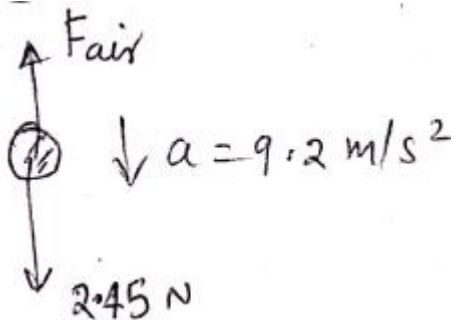 Fair
a = 9.2 m/s²
2.45 N